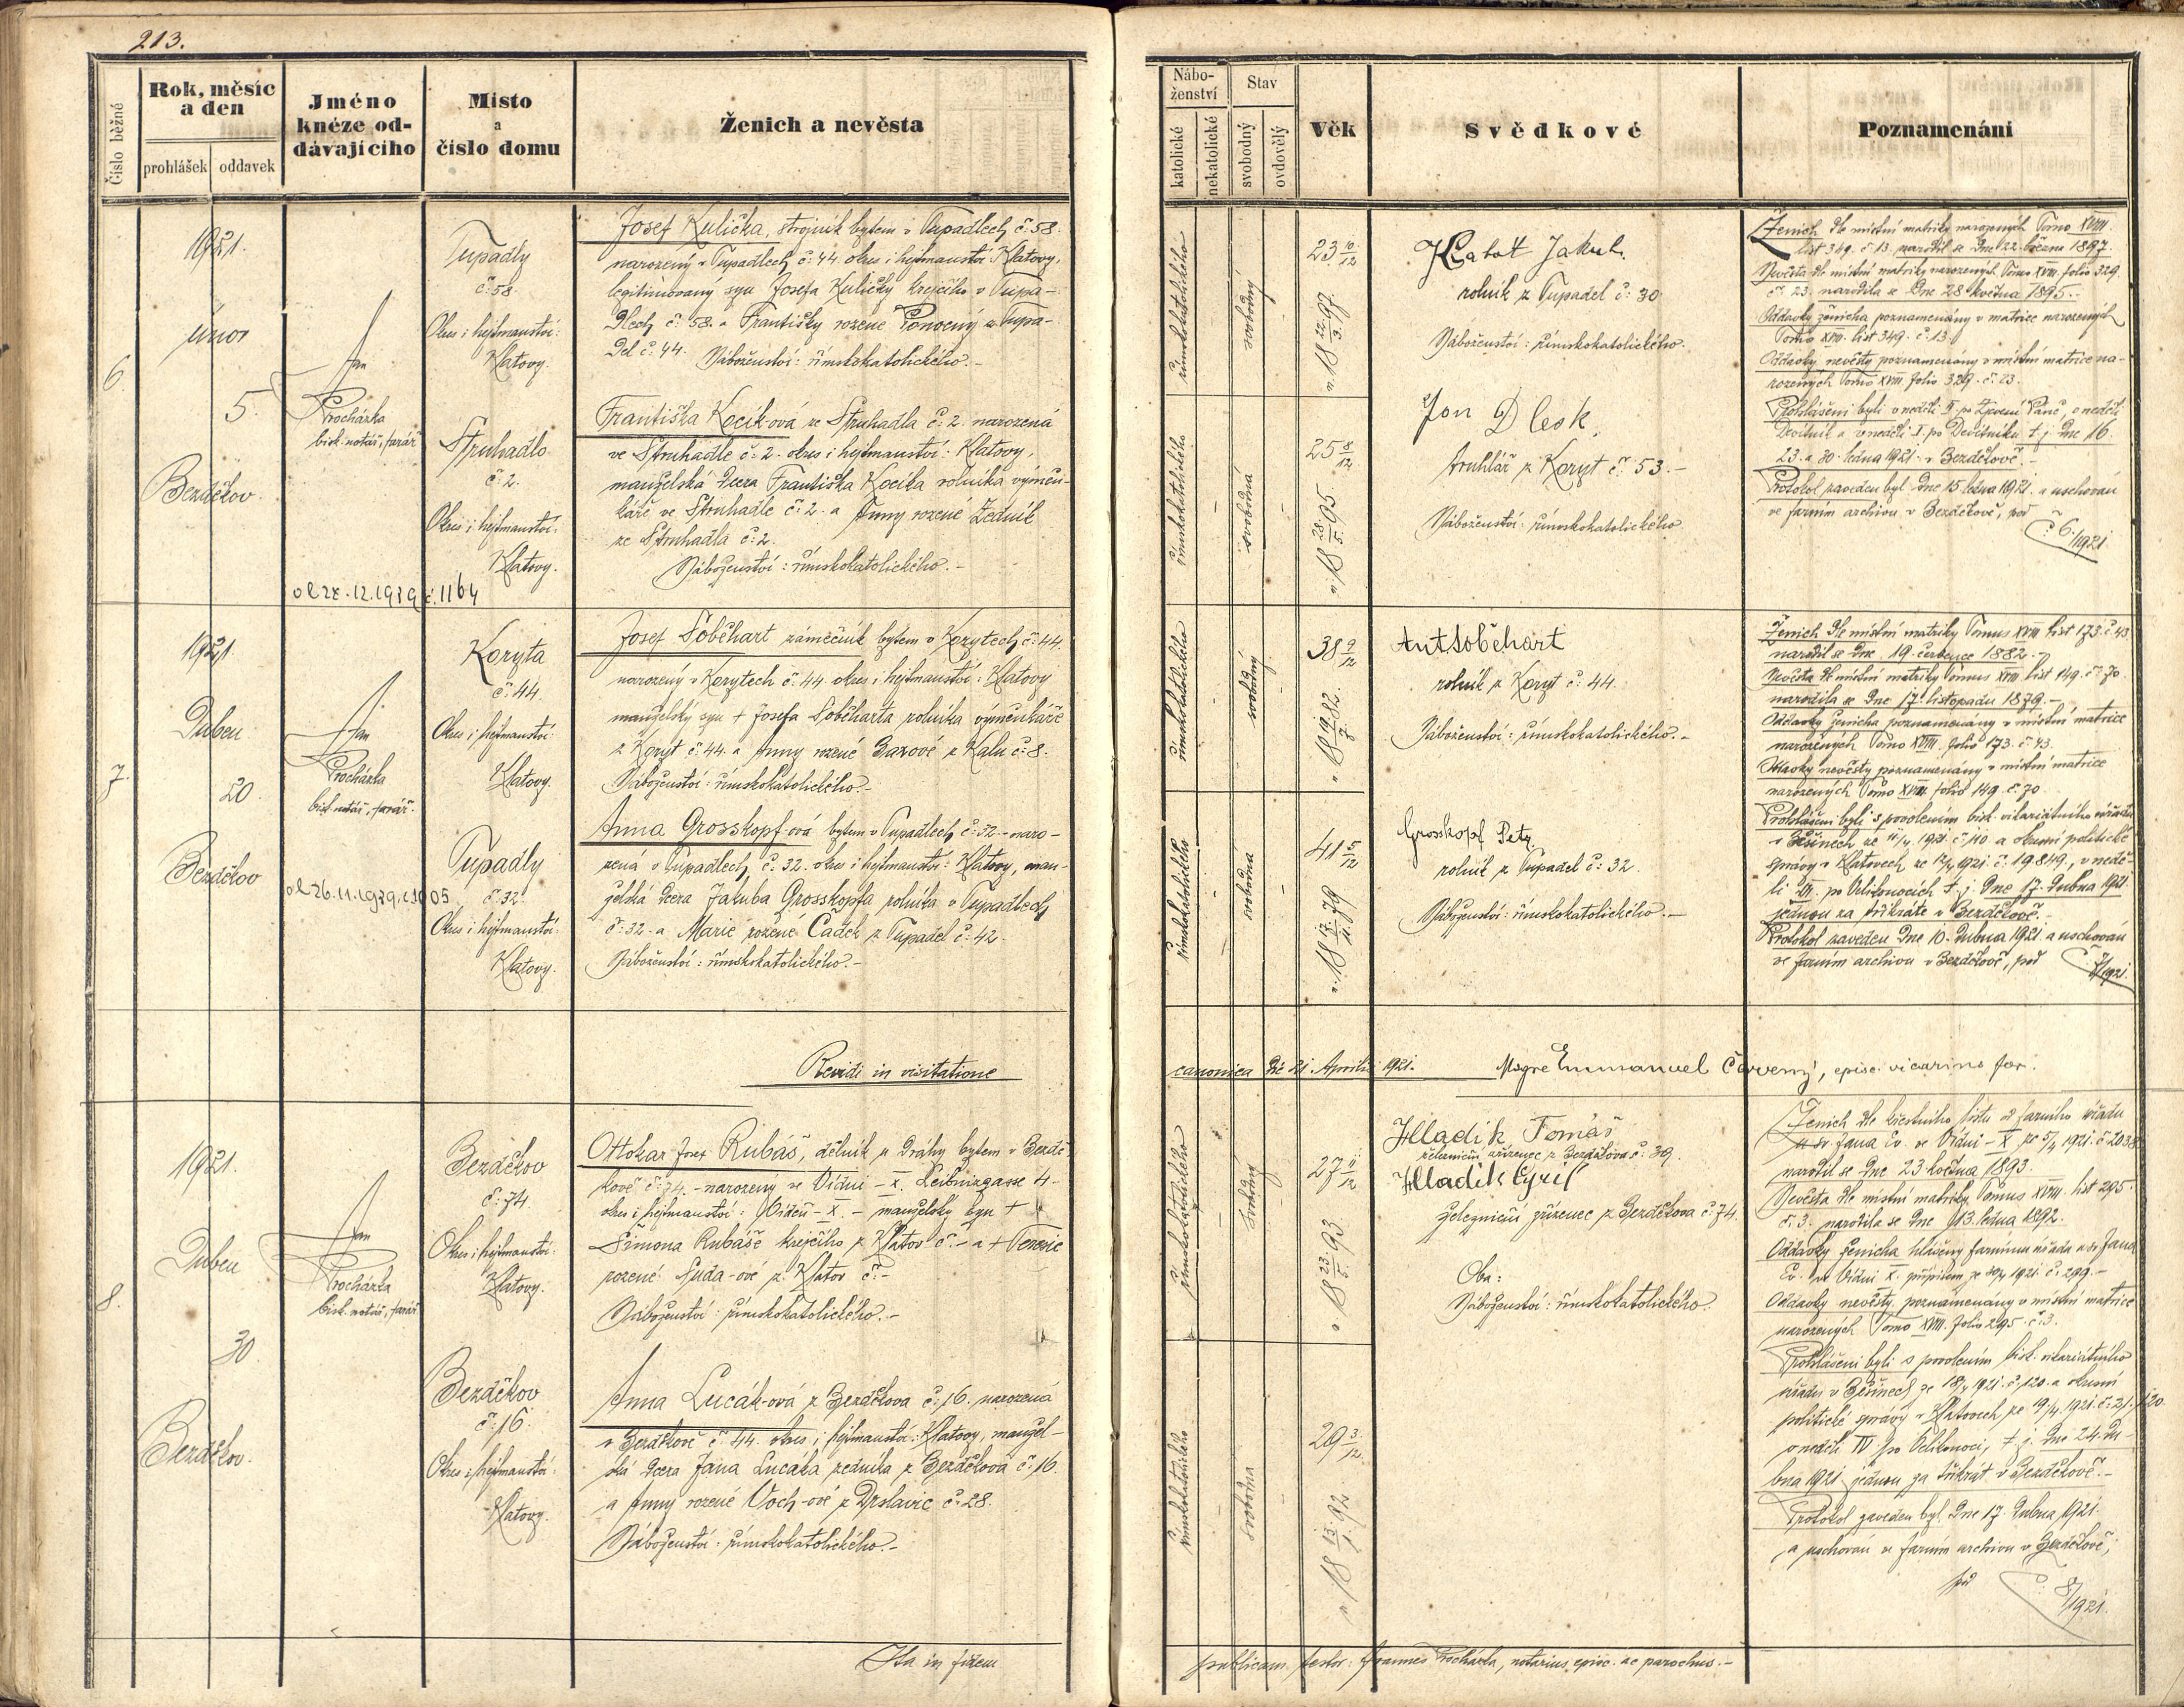 213.
Číslo běžné
Rok, měsíc
a den
prohlášek
oddavek
Jméno
knéze od-
dávajícího
Místo
a
číslo domu
Ženich a nevěsta
Nábo-
ženství
katolické
nekatolické
Stav
svobodný
ovdovělý
Věk
Svědkové
Poznamenání
6.
1921.
únor
5.
Bezděkov.
Jan
Procházka
bisk. notář, farář
Tupadly
č: 58.
Okres i hejtmanství:
Klatovy.
Struhadlo
č: 2.
Okres i hejtmanství:
Klatovy.
Josef Kulička, strojník bytem v Tupadlech č: 58.
narozený v Tupadlech č: 44. okres i hejtmanství: Klatovy,
legitimovaný syn Josefa Kuličky krejčího v Tupa-
dlech č: 58. a Františky rozené z Tupa-
del č: 44. Náboženství: římskokatolického.-
Františka Kocík-ová ze Struhadla č: 2. narozená
ve Struhadle č: 2. okres i hejtmanství: Klatovy,
manželská dcera Františka Kocíka rolníka výměn-
káře ve Struhadle č: 2. a Anny rozené Zedník
ze Struhadla č: 2.
Náboženství: římskokatolického.-
č. 1164
římskokatolického
svobodný
23 10/12
n. 18 22/3. 97.
římskokatolického
svobodná
25 8/12
n. 18 28/5. 95.
Jakub.
rolník z Tupadel č: 30
Náboženství: římskokatolického.
Jan Dlesk.
truhlář z Koryt č: 53.-
Náboženství: římskokatolického.
Ženich dle místní matriky narozených Tomo XVIII.
list 349. č. 13. narodil se dne 22. března 1897.
Nevěsta dle místní matriky narozených Tomo XVIII. folio 329.
č. 23. narodila se dne 28. května 1895.-
Oddavky ženicha poznamenány v matrice narozených
Tomo XVIII. list 349. č. 13.
Oddavky nevěsty poznamenány v místní matrice na-
rozených Tomo XVIII. folio 329. č. 23.
Prohlášeni byli v neděli II. po Zjevení Páně, v neděli
Devítník a v neděli I. po Devítníku t. j. dne 16.
23. a 30. ledna 1921. v Bezděkově.-
Protokol zaveden byl dne 15. ledna 1921. a uschován
ve farním archivu v Bezděkově, pod
č 6./1921.
7.
1921
Duben
20.
Bezděkov
Jan
Procházka
bisk. notář, farář.
Koryta
č: 44.
Okres i hejtmanství:
Klatovy.
Tupadly
č: 32.
Okres i hejtmanství:
Klatovy.
Josef Soběhart zámečník bytem v Korytech č: 44.
narozený v Korytech č: 44. okres i hejtmanství: Klatovy
manželský syn + Josefa Soběharta rolníka výměnkáře
z Koryt č: 44. a Anny rozené z Kalu č: 8.
Náboženství: římskokatolického.-
Anna Grosskopf-ová bytem v Tupadlech č: 32.- naro-
zená v Tupadlech č: 32. okres i hejtmanství: Klatovy, man-
želská dcera Jakuba Grosskopfa rolníka v Tupadlech
č: 32. a Marie rozené Čadek z Tupadel č: 42.
Náboženství: římskokatolického.-
římskokatolického
svobodný
38 9/12
n. 18 19/7. 82.
římskokatolického
svobodná
41 5/12
n. 18 17/11. 79
Ant Soběhart
rolník z Koryt č: 44.
Náboženství: římskokatolického.-
Grosskopf Petr
rolník z Tupadel č: 32.
Náboženství: římskokatolického.-
Ženich dle místní matriky Tomus XVIII list 173. č. 43
narodil se dne 19. července 1882.-
Nevěsta dle místní matriky Tomus XVIII list 149. č. 70
narodila se dne 17. listopadu 1879.-
Oddavky ženicha poznamenány v místní matrice
narozených Tomo XVIII. folio 173. č. 43.
Oddavky nevěsty poznamenány v místní matrice
narozených Tomo XVIII. folio 149. č. 70.
Prohlášeni byli s povolením bisk. vikariátního úřadu
v Běšinech ze 11/4 1921. č. 110. a okresní politické
správy v Klatovech ze 12/4 1921. č. 19849., v nedě-
li III. po Velikonocích t. j. dne 17. dubna 1921
jednou za třikráte v Bezděkově.-
Protokol zaveden dne 10. dubna 1921. a uschován
ve farním archivu v Bezděkově, pod č 7/1921.
Revidi in visitatione canonica die 21. Aprilis 1921. Msgre Emmanuel Červený, episc. vicarius for.
8.
1921.
Duben
30.
Bezděkov.
Jan
Procházka
bisk. notář, farář
Bezděkov
č: 74
Okres i hejtmanství:
Klatovy.
Bezděkov
č: 16.
Okres i hejtmanství:
Klatovy.
Ottokar Josef Rubáš, dělník u dráhy bytem v Bezdě-
kově č: 74.- narozený ve Vídni - X. Leibnizgasse 4.-
okres i hejtmanství: Vídeň - X. - manželský syn +
Šimona Rubáše krejčího z Klatov č.- a + Terezie
rozené Suda-ové z Klatov č:-
Náboženství: římskokatolického.-
Anna Lucák-ová z Bezděkova č: 16. narozená
v Bezděkově č: 44. okres i hejtmanství: Klatovy, manžel-
ská dcera Jana Lucáka zedníka z Bezděkova č: 16.
a Anny rozené Voch-ové z Drslavic č: 28.
Náboženství: římskokatolického.-
římskokatolického
svobodný
27 11/12
n. 18 23/5. 93
římskokatolického
svobodna
29 3/12
n. 18 13/1. 92
Hladík Tomáš
železniční zřízenec z Bezděkova č: 39.
Hladík Cyril
železniční zřízenec z Bezděkova č: 74.
Oba:
Náboženství: římskokatolického.
Ženich dle křestního listu od farního úřadu
u sv. Jana Ev. ve Vídni - X ze 5/4 1921. č. 2038
narodil se dne 23. května 1893.
Nevěsta dle místní matriky Tomus XVIII. list 295.
č. 3. narodila se dne 13. ledna 1892.
Oddavky ženicha hlášeny farnímu úřadu u sv. Jana
Ev. ve Vídni X. přípisem ze 30/4 1921. č. 299.-
Oddavky nevěsty poznamenány v místní matrice
narozených Tomo XVIII. folio 295. č. 3.
Prohlášeni byli s povolením bisk. vikariátního
úřadu v Běšinech ze 18/4 1921. č. 120. a okresní
politické správy v Klatovech ze 19/4. 1921.
v neděli IV po Velikonoci, t. j. dne 24. du-
bna 1921 jednou za třikrát v Bezděkově.-
Protokol zaveden byl dne 17. dubna 1921.
a uschován ve farním archivu v Bezděkově,
pod č. 8/1921.
Ita in fidem publicam testor: Joannes Procházka, notarius episc. ac parochus.-